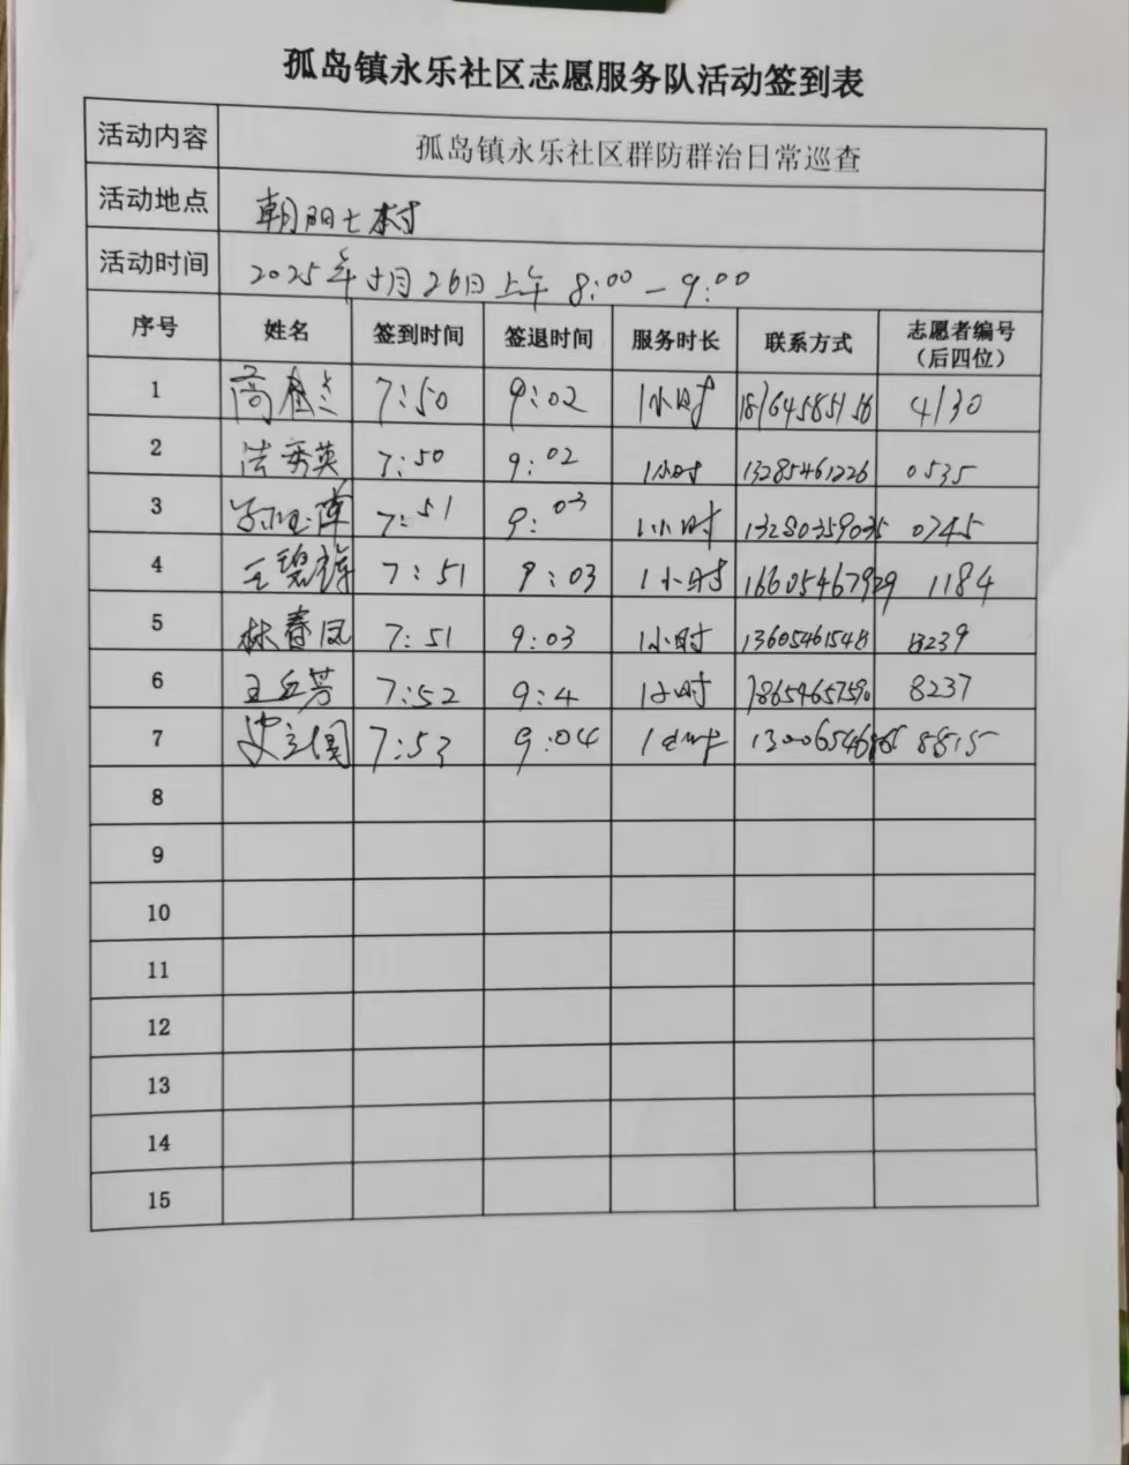 孤岛镇永乐社区志愿服务队活动签到表
活动内容 孤岛镇永乐社区群防群治日常巡查
活动地点 朝阳七村
活动时间 2025年5月26日上午 8:00-9:00
序号 姓名 签到时间 签退时间 服务时长 联系方式 志愿者编号
(后四位)
1 高桂兰 7:50 9:02 1小时 4130
2 法秀英 7:50 9:02 1小时 13285461226 0535
3 7:51 9:03 1小时 13280359035 0745
4 王碧 7:51 9:03 1小时 16605467929 1184
5 林春凤 7:51 9:03 1小时 13605461548 3239
6 王 芳 7:52 9:4 1小时 18654657590 8237
7 史立国 7:53 9:04 1小时 8815
8
9
10
11
12
13
14
15